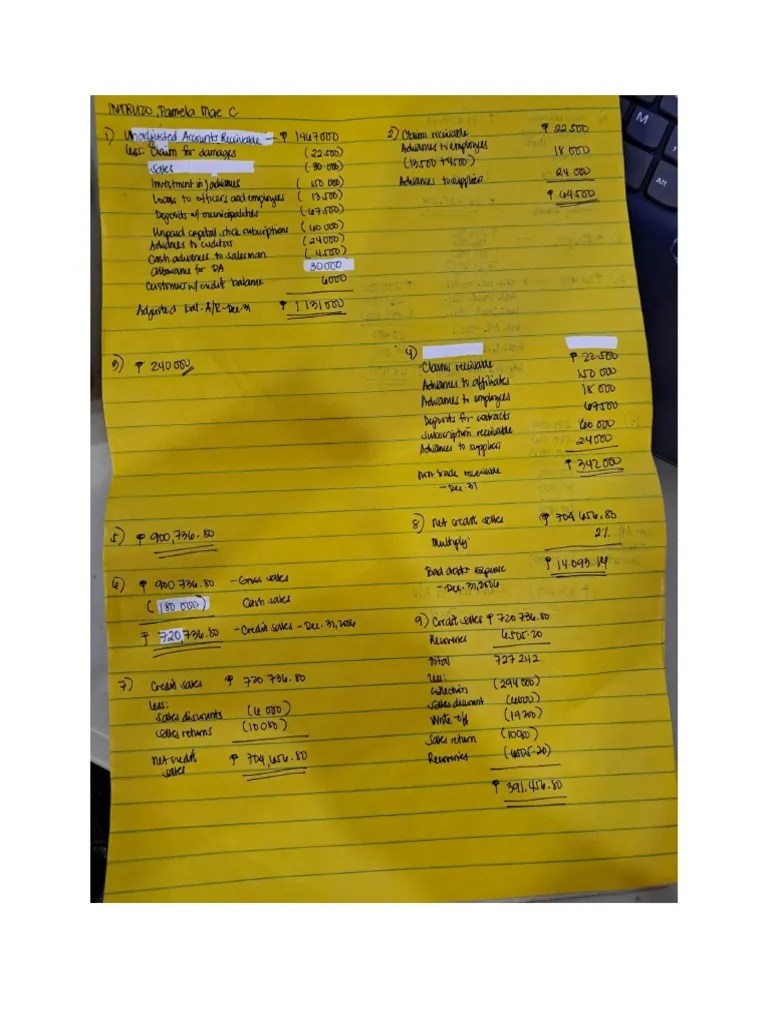 INTRUZO, Pamela Mae C
1) Unadjusted Accounts Receivable - ₱ 1467000
less: Claim for damages (22500)
Sales (30 000)
Investment in / advances (150 000)
Loans to officers and employees (13500)
Deposits w/ municipalities (67500)
Unpaid capital stock subscriptions (60000)
Advances to creditors (24000)
Cash advances to salesman (4500)
Allowance for DA 30000
Customers w/ credit balance 6000
Adjusted bal. A/R - Dec. 31 ₱ 1131000
2) Claims receivable ₱ 22500
Advances to employees
(13500 + 4500) 18 000
Advances to suppliers 24 000
₱ 64500
3) ₱ 240000
4)
Claims receivable ₱ 22500
Advances to affiliates 150 000
Advances to employees 18 000
Deposits for contracts 67500
Subscription receivable 60 000
Advances to suppliers 24000
Non trade receivable ₱ 342000
- Dec. 31
5) ₱ 900,736.80
6) ₱ 900 736.80 - Gross sales
(180 000) Cash sales
₱ 720,736.80 - Credit sales - Dec. 31, 2006
7) Credit sales ₱ 720 736.80
less:
Sales discounts (6 000)
Sales returns (10080)
Net credit ₱ 704,656.80
sales
8) Net credit sales ₱ 704 656.80
Multiply: 2%
Bad debt expense ₱ 14093.14
- Dec. 31, 2006
9) Credit sales ₱ 720 736.80
Recoveries 6505.20
Total 727 242
less:
Collection (294000)
Sales discount (6000)
Write off (19200)
Sales return (10080)
Recoveries (6505.20)
₱ 391,456.80